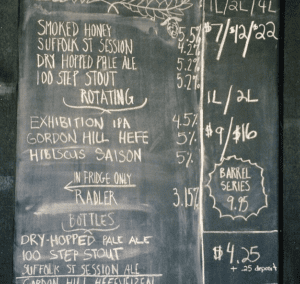 1L/2L/4L
SMOKED HONEY 5.5%
SUFFOLK ST SESSION 4.2%
DRY HOPPED PALE ALE 5.2%
100 STEP STOUT 5.2%
$7/$12/$22
ROTATING
1L/2L
EXHIBITION IPA 4.5%
GORDON HILL HEFE 5%
HIBISCUS SAISON 5%
$9/$16
IN FRIDGE ONLY
RADLER 3.15%
BARREL
SERIES
9.95
BOTTLES
DRY-HOPPED PALE ALE
100 STEP STOUT
SUFFOLK ST SESSION ALE
GORDON HILL HEFEWEIZEN
$4.25
+ .25 deposit